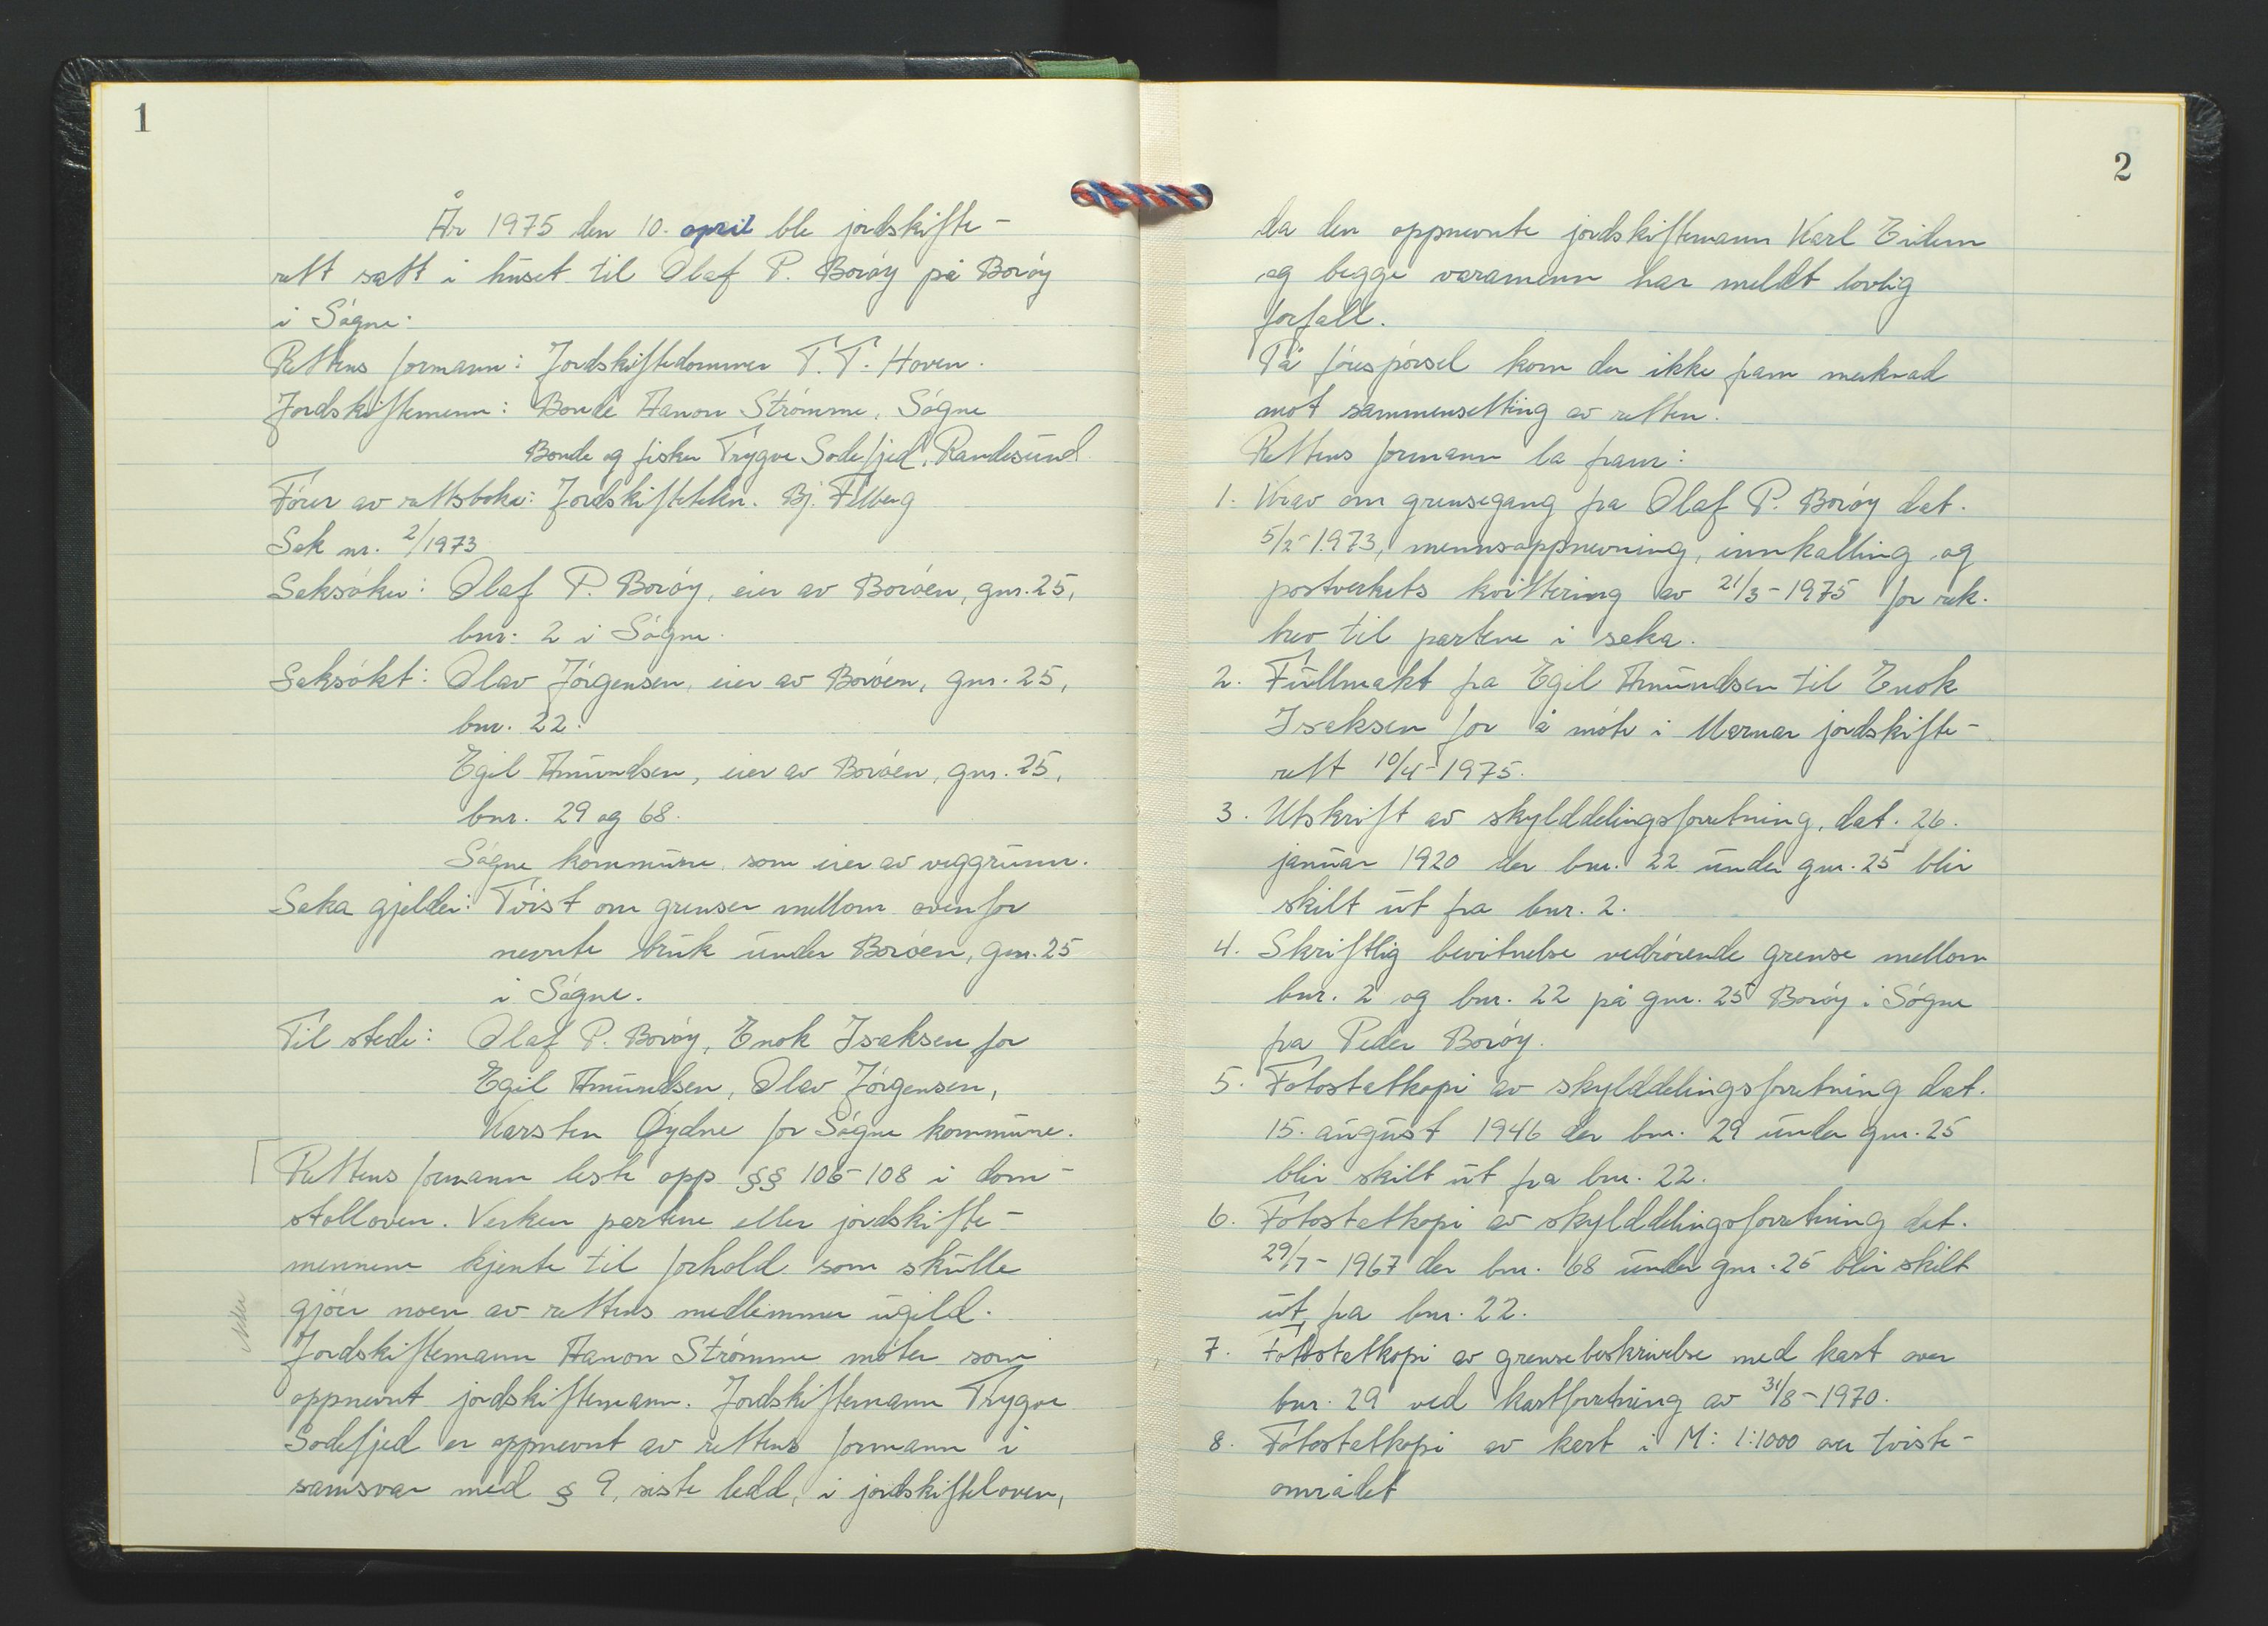 1
År 1975 den 10. april ble jordskifte-
rett satt i huset til Olaf P. Borøy på Borøy
i Søgne:
Rettens formann: Jordskiftedommer T. T. Hoven.
Jordskiftemenn: Bonde Hanon Strømme, Søgne
Bonde og fisker Trygve Sodefjed, Randesund
Fører av rettsboka: Jordskiftetekn. Bj. Filberg
Sak nr. 2/1973
Saksøker: Olaf P. Borøy, eier av Borøen, gnr. 25,
bnr. 2 i Søgne.
Saksøkt: Olav Jørgensen, eier av Borøen, gnr. 25,
bnr. 22.
Egil Amundsen, eier av Borøen, gnr. 25,
bnr. 29 og 68.
Søgne kommune, som eier av veggrunn.
Saka gjelder: Tvist om grenser mellom ovenfor
nevnte bruk under Borøen, gnr. 25
i Søgne.
Til stede: Olaf P. Borøy, Enok Isaksen for
Egil Amundsen, Olav Jørgensen,
Karsten Øydne for Søgne kommune.
Rettens formann leste opp §§ 106-108 i dom-
stolloven. Verken partene eller jordskifte-
mennene kjente til forhold som skulle
gjøre noen av rettens medlemmer ugild.
Jordskiftemann Hanon Strømme møter som
oppnevnt jordskiftemann. Jordskiftemann Trygve
Sodefjed er oppnevnt av rettens formann i
samsvar med § 9, siste ledd, i jordskifteloven,
2
da den oppnevnte jordskiftemann Karl Eidem
og begge varamenn har meldt lovlig
forfall.
På førespørsel kom der ikke fram merknad
mot sammensetting av retten.
Rettens formann la fram:
1. Krav om grensegang fra Olaf P. Borøy dat.
5/2-1973, mennsoppnevning, innkalling og
postverkets kvittering av 21/3-1975 for rek.
brev til partene i saka.
2. Fullmakt fra Egil Amundsen til Enok
Isaksen for å møte i Marnar jordskifte-
rett 10/4-1975.
3. Utskrift av skylddelingsforretning, dat. 26.
januar 1920 der bnr. 22 under gnr. 25 blir
skilt ut fra bnr. 2.
4. Skriftlig bevitnelse vedrørende grense mellom
bnr. 2 og bnr. 22 på gnr. 25 Borøy i Søgne
fra Peder Borøy.
5. Fotostatkopi av skylddelingsforretning dat.
15. august 1946 der bnr. 29 under gnr. 25
blir skilt ut fra bnr. 22.
6. Fotostatkopi av skylddelingsforretning dat.
29/7-1967 der bnr. 68 under gnr. 25 blir skilt
ut fra bnr. 22.
7. Fotostatkopi av grensebeskrivelse med kart over
bnr. 29 ved kartforretning av 31/8-1970.
8. Fotostatkopi av kart i M: 1:1000 over tviste-
området